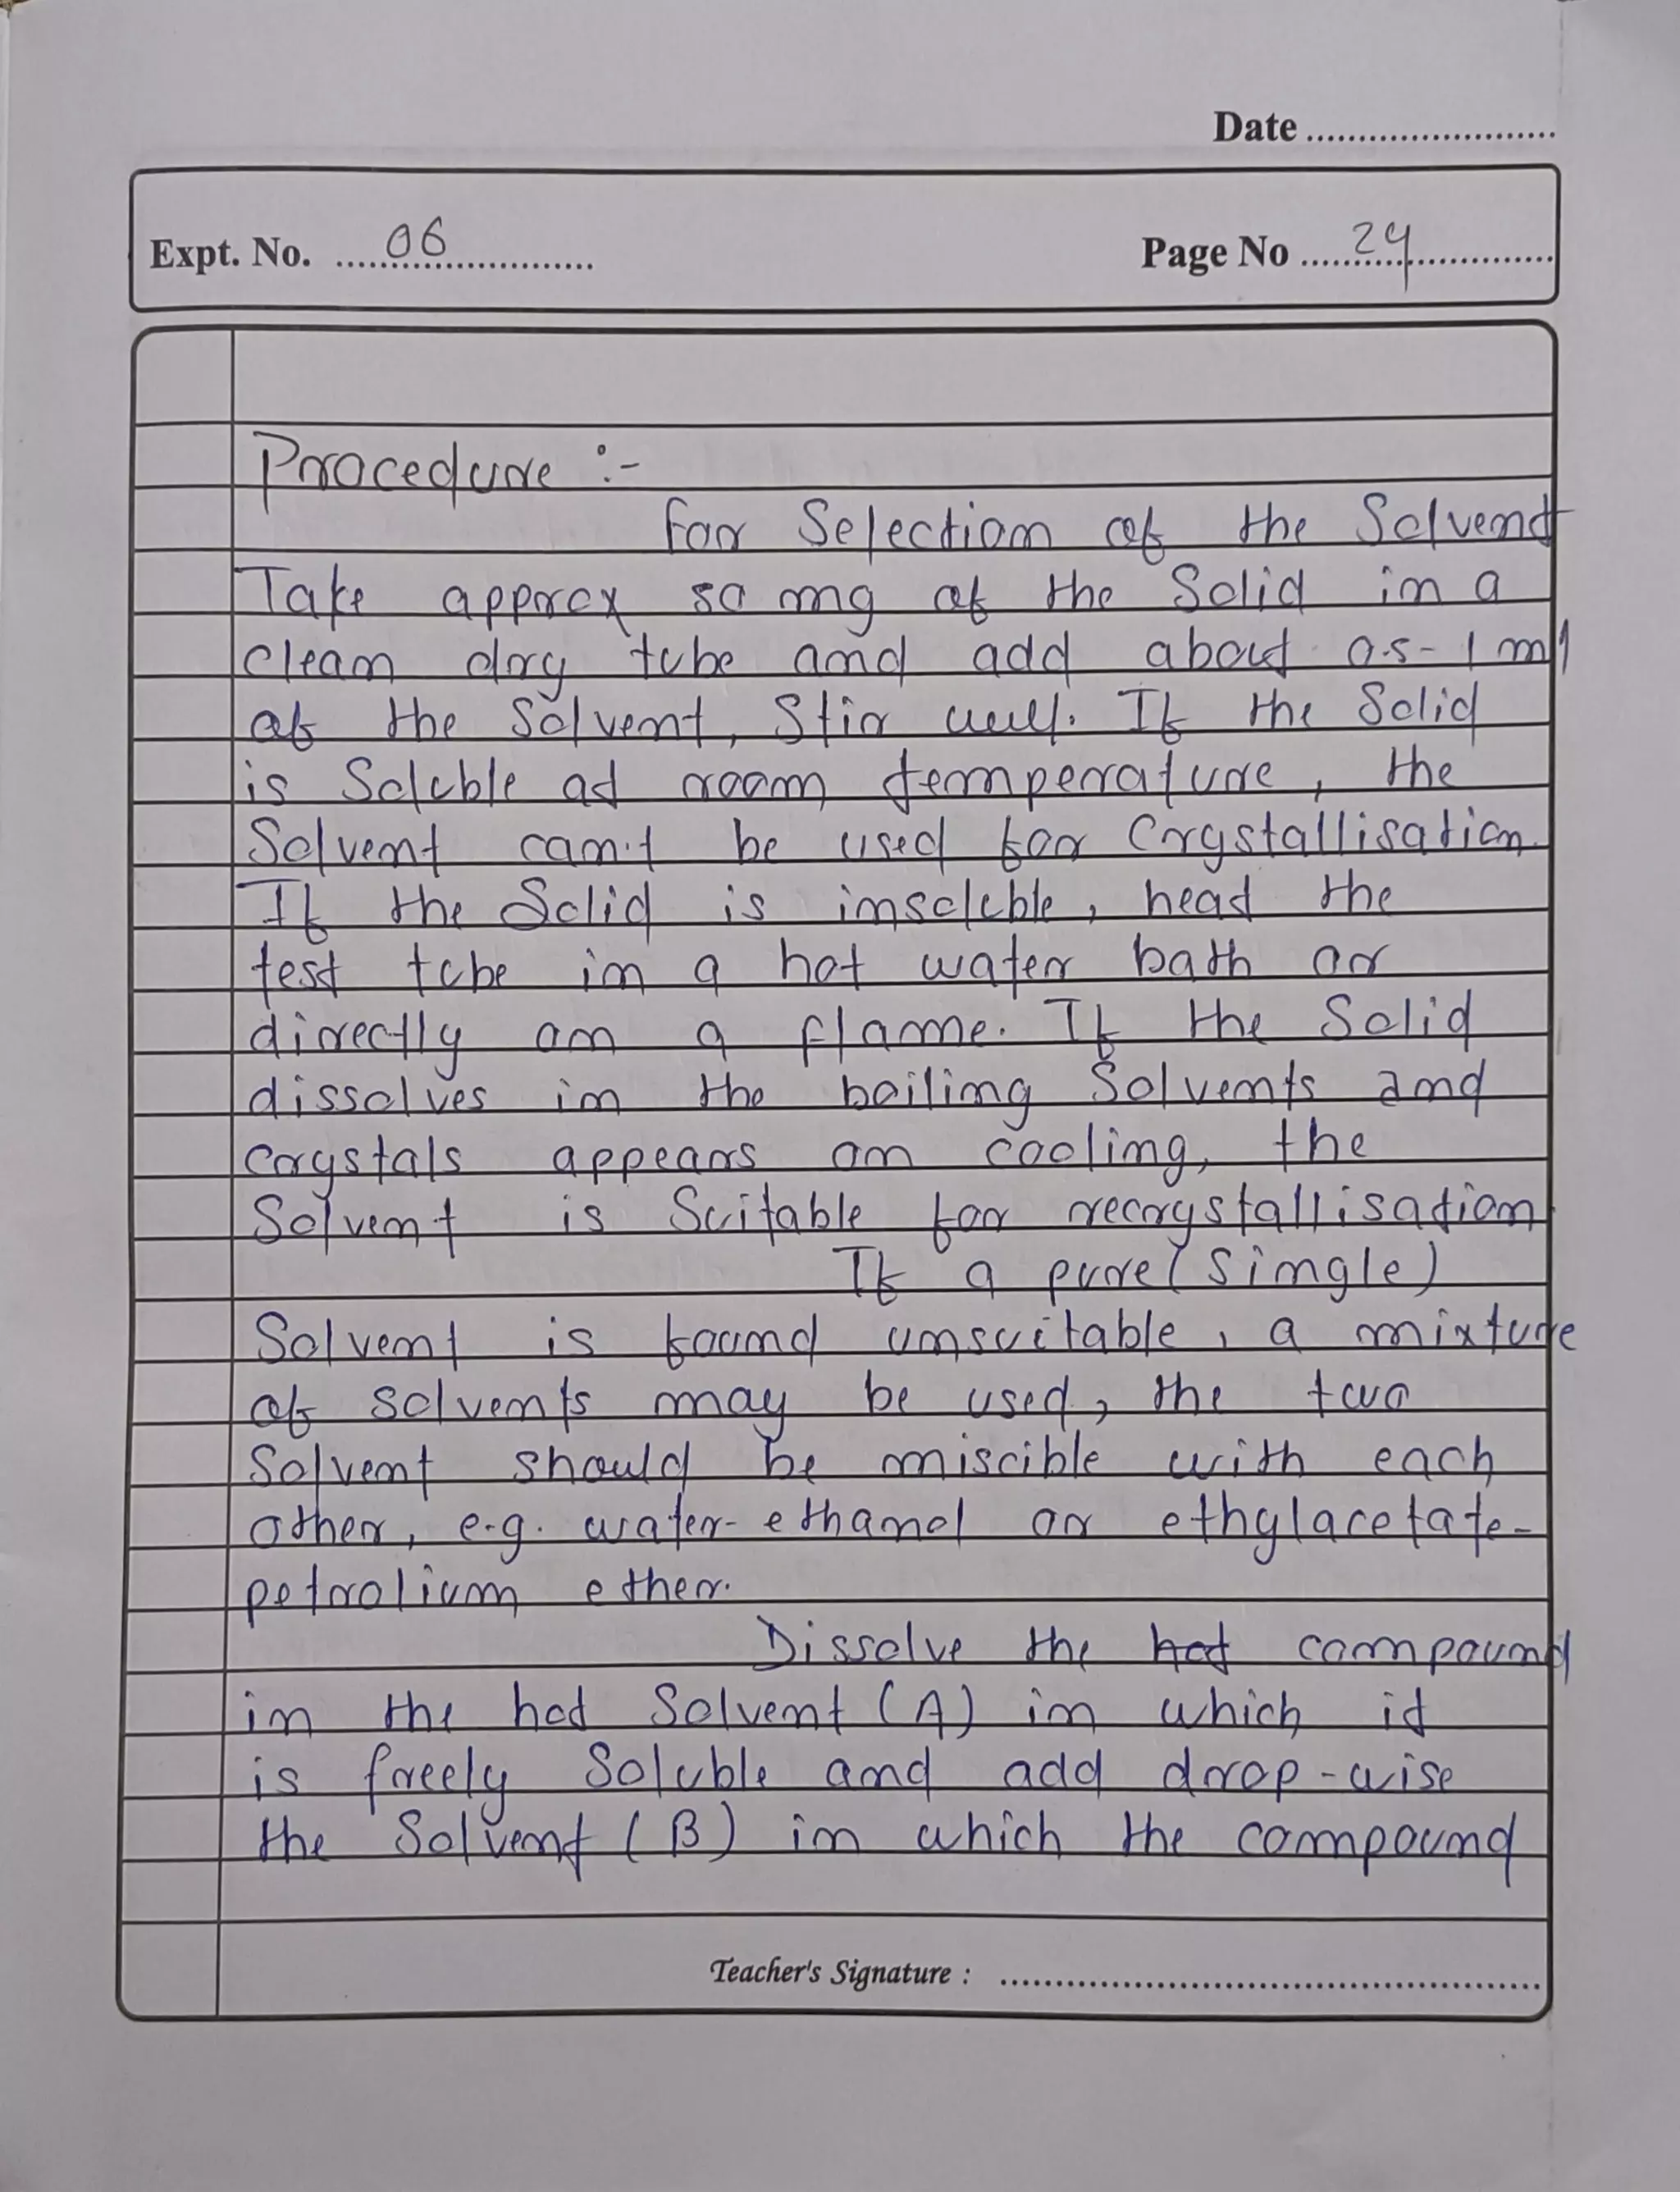 Date
Expt. No. 06
Page No 24
Procedure :-
For Selection of the Solvent
Take approx 50 mg of the Solid in a
clean dry tube and add about 0.5-1 ml
of the Solvent, Stir well. If the Solid
is Soluble at room temperature, the
Solvent can't be used for Crystallisation.
If the Solid is insoluble, heat the
test tube in a hot water bath or
directly on a flame. If the Solid
dissolves in the boiling Solvents and
crystals appears on cooling, the
Solvent is Suitable for recrystallisation
If a pure (Single)
Solvent is found unsuitable, a mixture
of solvents may be used, the two
Solvent should be miscible with each
other, e.g. water-ethanol or ethylacetate-
petrolium ether.
Dissolve the hot compound
in the hot Solvent (A) in which it
is freely Soluble and add drop-wise
the Solvent (B) in which the compound
Teacher's Signature :